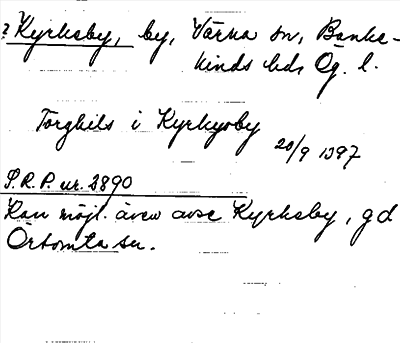 ? Kyrksby, by, Värna sn, Banke-
kinds hd, Ög. l.
Torghils i Kyrkyoby
20/9 1397
S.R.P. nr. 2890
Kan möjl. även avse Kyrksby, gd
Örtomta sn.